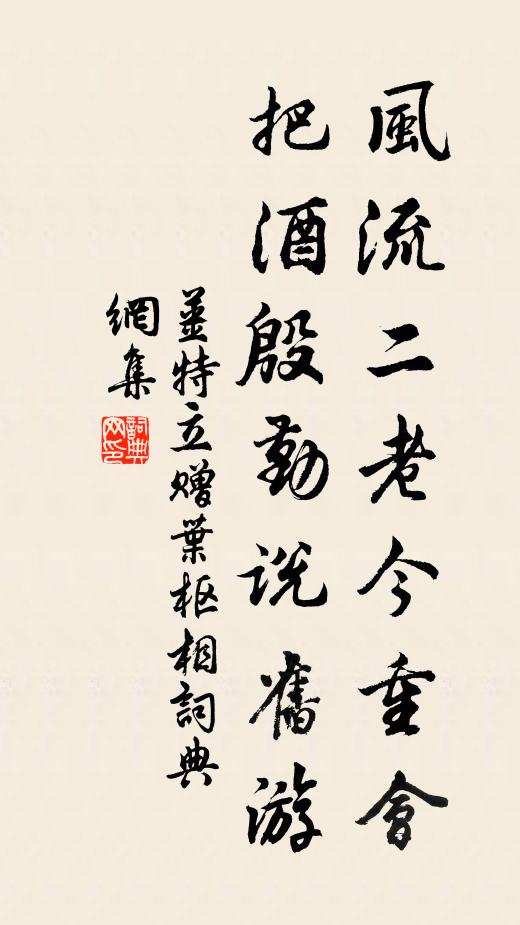 風流二老今重會
把酒殷勤說舊游
姜特立贈葉枢相詞典
網集
詞典
网印